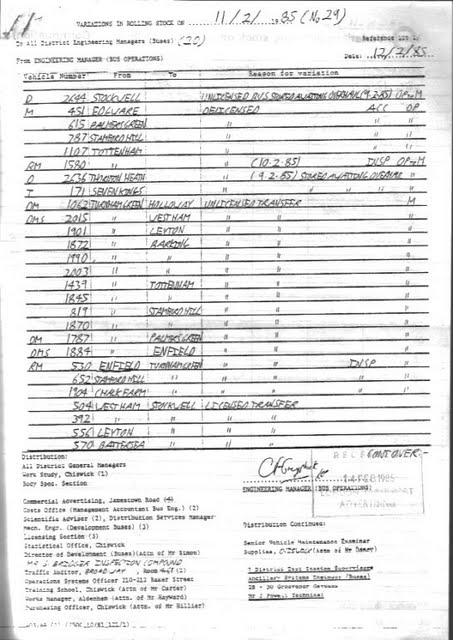 VARIATIONS IN ROLLING STOCK ON 11/2/ 1985 (No 29)
To All District Engineering Managers (Buses) (20)
From ENGINEERING MANAGER (BUS OPERATIONS) Date: 12/2/85
Vehicle Number From To Reason for variation
D 2644 STOCKWELL UNLICENSED BUS STORED AWAITING OVERHAUL (9.2.85) OP→M
M 451 EDGWARE DELICENSED ACC OP
615 PALMERS GREEN " " "
787 STAMFORD HILL " " "
1107 TOTTENHAM " " "
RM 1580 " " (10.2.85) INSP OP→M
D 2636 THORNTON HEATH " (9.2.85) STORED AWAITING OVERHAUL "
T 171 SEVEN KINGS " " " " " "
DM 1062 TURNHAM GREEN HOLLOWAY UNLICENSED TRANSFER M
DMS 2015 " WESTHAM " " "
1901 " LEYTON " " "
1872 " BARKING " " "
1990 " " " " "
2003 " " " " "
1439 " TOTTENHAM " " "
1845 " " " " "
819 " STAMFORD HILL " " "
1870 " " " " "
DM 1787 " PALMERS GREEN " " "
DMS 1884 " ENFIELD " " "
RM 530 ENFIELD TURNHAM GREEN " " INSP "
652 STAMFORD HILL " " " " "
1904 CHALK FARM " " " " "
504 WESTHAM STOCKWELL LICENSED TRANSFER
392 " " " "
556 LEYTON " " "
570 BATTERSEA " " "
CONT OVER:-
Distribution:
All District General Managers
Work Study, Chiswick (1)
Body Spec. Section
14 FEB 1985
ENGINEERING MANAGER (BUS OPERATIONS)
Commercial Advertising, Jamestown Road (4)
Costs Office (Management Accountant Bus Eng.) (2)
Scientific Adviser (2), Distribution Services Manager
Mech. Engr. (Development Buses) (3)
Licensing Section (3)
Statistical Office, Chiswick
Director of Development (Buses)(Attn of Mr Simon)
INSPECTION COMPOUND
Traffic Auditor, BROADWAY, Room
Operations Systems Officer 210-212 Baker Street
Training School, Chiswick (Attn of Mr Carter)
Works Manager, Aldenham (Attn. of Mr Hayward)
Purchasing Officer, Chiswick (Attn. of Mr Hillier)
Distribution Continued:
Senior Vehicle Maintenance Examiner
Supplies, CHISWICK (Attn of Mr Dandy)
Ancillary Systems Engineer (Buses)
28 - 30 Grosvenor Gardens
Mr J Powell Technical